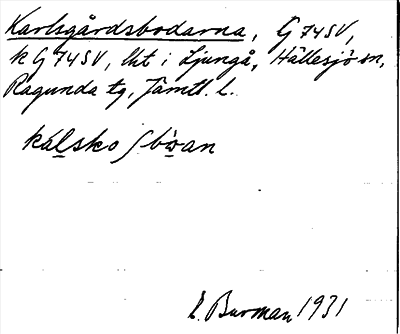 Karlsgårdsbodarna, G 74 SV,
k G 74 SV, lht i Ljungå, Hällesjö sn,
Ragunda tg, Jämtl. l.
E. Burman 1931